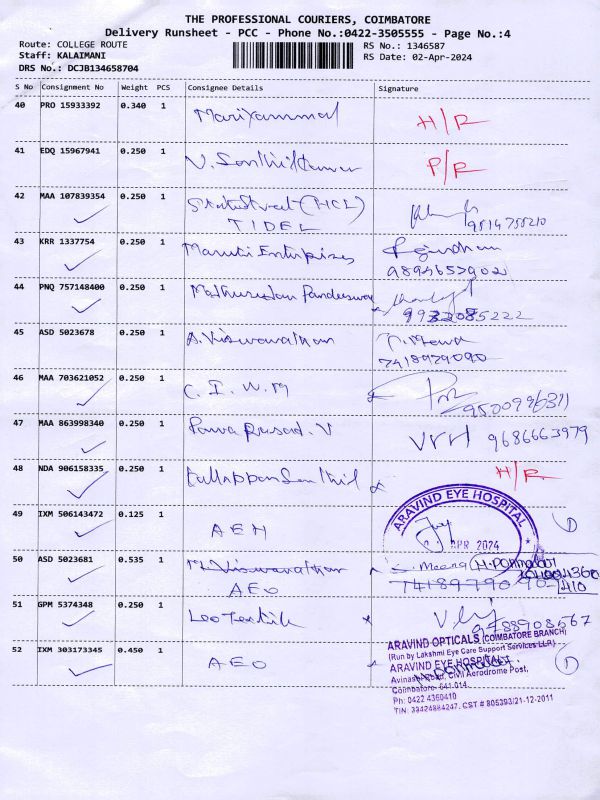 THE PROFESSIONAL COURIERS, COIMBATORE
Delivery Runsheet - PCC - Phone No.:0422-3505555 - Page No.:4
Route: COLLEGE ROUTE
RS No.: 1346587
Staff: KALAIMANI
RS Date: 02-Apr-2024
DRS No.: DCJB134658704
S No Consignment No Weight PCS Consignee Details Signature
40 PRO 15933392 0.340 1 Mariyammal H/R
41 EDQ 15967941 0.250 1 V. Senthilkumar P/R
42 MAA 107839354 0.250 1 (HCL)
TIDEL 9514755210
43 KRR 1337754 0.250 1 Maruti Enterprises
9894653902
44 PNQ 757148400 0.250 1
9932085222
45 ASD 5023678 0.250 1 A. Viswanathan
7418979090
46 MAA 703621052 0.250 1 C. I. W. M 9500996311
47 MAA 863998340 0.250 1 Pawa Prasad. V 9686663979
48 NDA 906158335 0.250 1 H/R
49 IXM 506143472 0.125 1 AEH
ARAVIND EYE HOSPITAL
APR 2024
50 ASD 5023681 0.535 1 M. Viswanathan
AEO 74189790 90 410
51 GPM 5374348 0.250 1 Leo Textile
ARAVIND OPTICALS (COIMBATORE BRANCH)
(Run by Lakshmi Eye Care Support Services LLP)
52 IXM 303173345 0.450 1 AEO
ARAVIND EYE HOSPITAL
Avinashi Road, Civil Aerodrome Post,
Coimbatore-641 014.
Ph: 0422 4360410
TIN: 33424884247. CST # 805393/21-12-2011